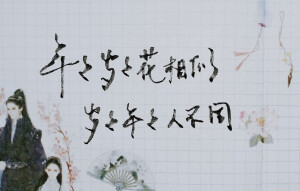 年々岁々花相似
岁々年々人不同